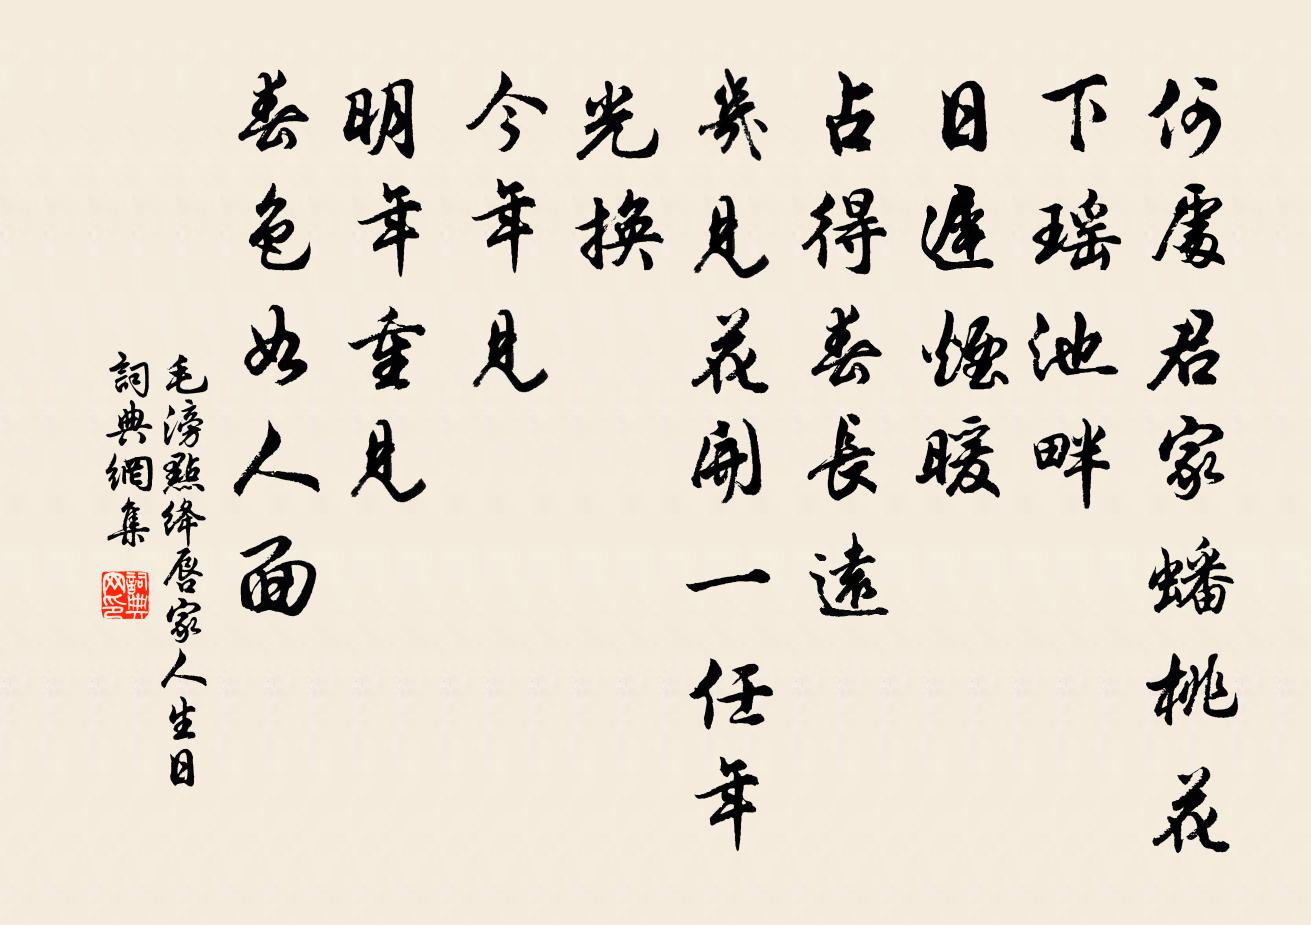 何處君家蟠桃花
下瑤池畔
日遲煙暖
占得春長遠
幾見花開一任年
光換
今年見
明年重見
春色如人面
毛滂點絳唇家人生日
詞典網集
詞典网印